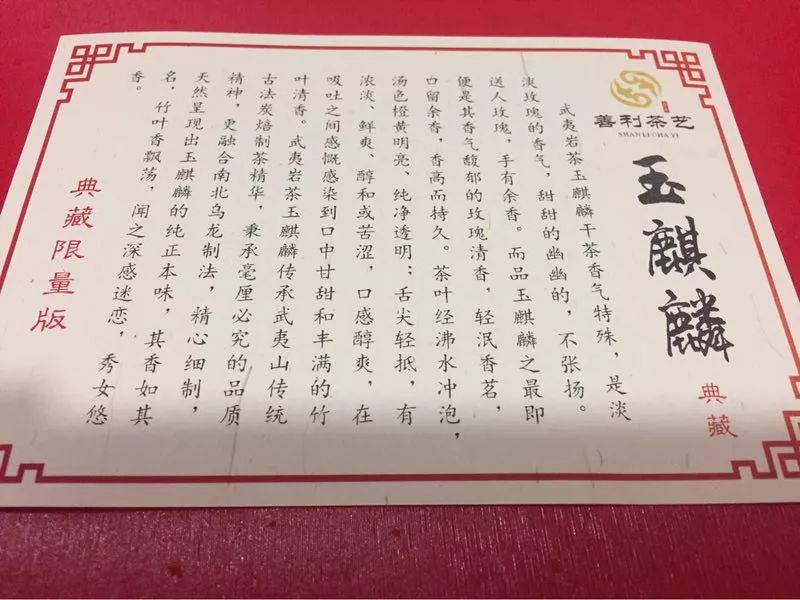 善利茶艺
SHANLICHAYI
玉麒麟
典藏
武夷岩茶玉麒麟干茶香气特殊，是淡
淡玫瑰的香气，甜甜的幽幽的，不张扬。
送人玫瑰，手有余香。而品玉麒麟之最即
便是其香气馥郁的玫瑰清香，轻泯香茗，
口留余香，香高而持久。茶叶经沸水冲泡，
汤色橙黄明亮、纯净透明；舌尖轻抵，有
浓淡、鲜爽、醇和或苦涩，口感醇爽，在
吸吐之间感慨感染到口中甘甜和丰满的竹
叶清香。武夷岩茶玉麒麟传承武夷山传统
古法炭焙制茶精华，秉承毫厘必究的品质
精神，更融合南北乌龙制法，精心细制，
天然呈现出玉麒麟的纯正本味，其香如其
名，竹叶香飘荡，闻之深感迷恋，秀女悠
香。
典藏限量版